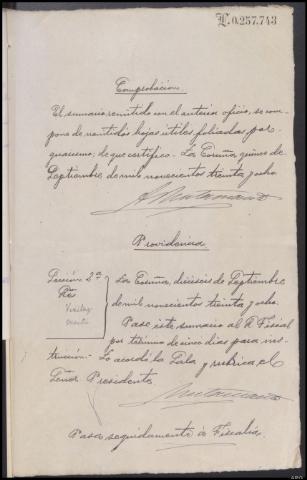 L.0.257.743
Comprobacion
El sumario remitido con el anterior oficio, se com-
pone de veintidós hojas utiles, foliadas, por
guarismo; de que certifico.- La Coruña quince de
Septiembre de mil novecientos treinta y ocho
Providencia
Sección 2ª
La Coruña, dieciseis de Septiembre
de mil novecientos treinta y ocho.
Pase este sumario al Sr Fiscal
por termino de cinco dias para ins-
trucción.- Lo acordó la Sala y rubrica el
Señor Presidente
Pasa seguidamente á Fiscalia